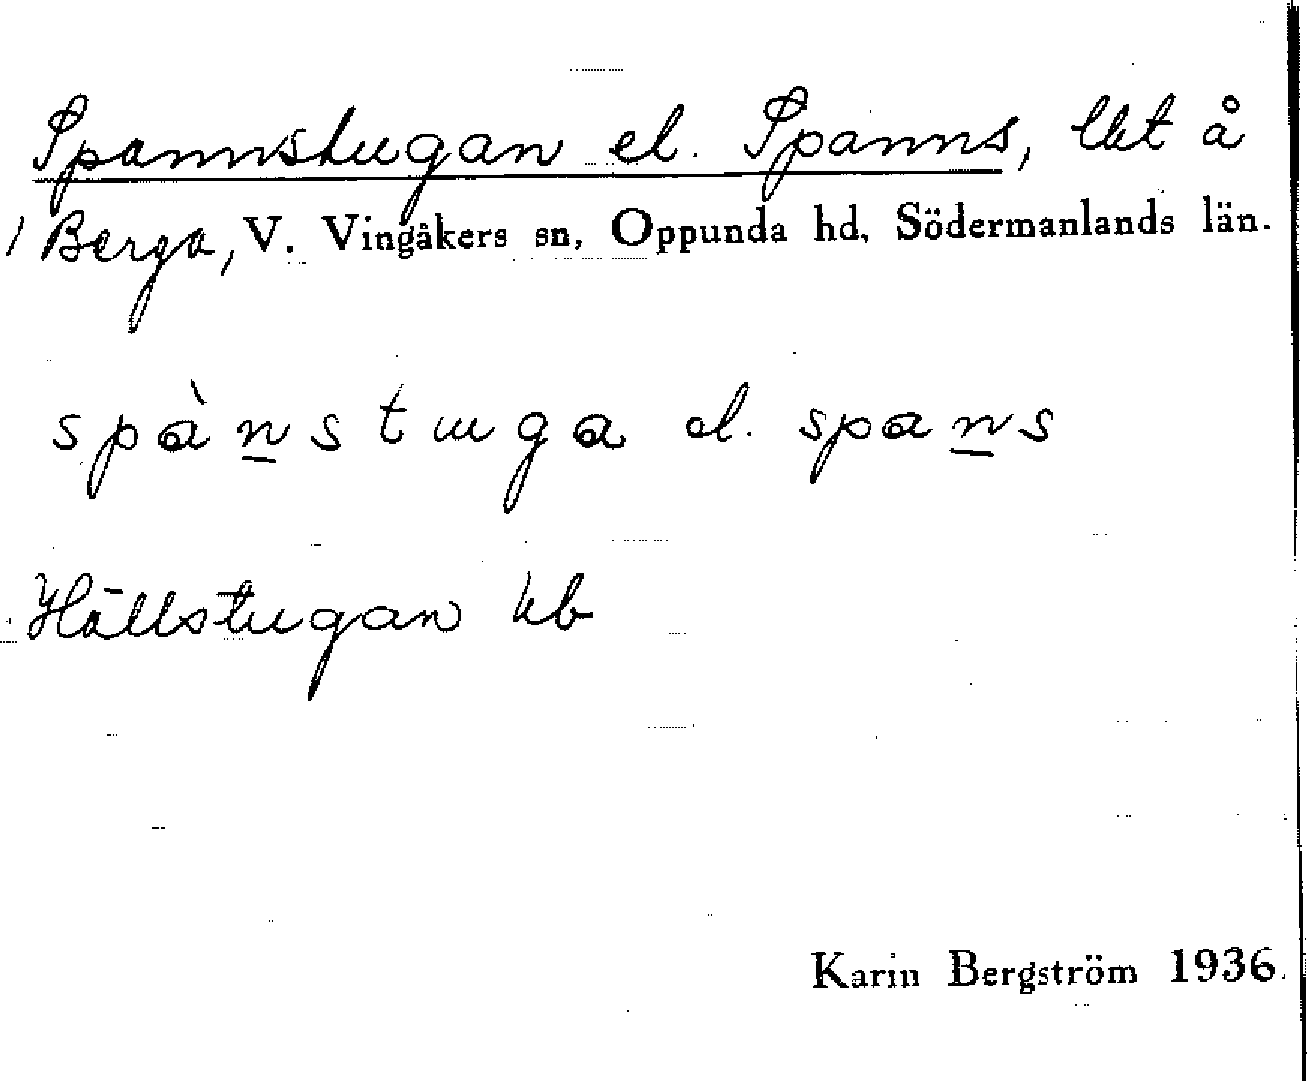 Spannstugan el. Spanns, lht å
/ Berga, V. Vingåkers sn, Oppunda hd, Södermanlands län.
spànstɯga el. spans
Hällstugan kb
Karin Bergström 1936.